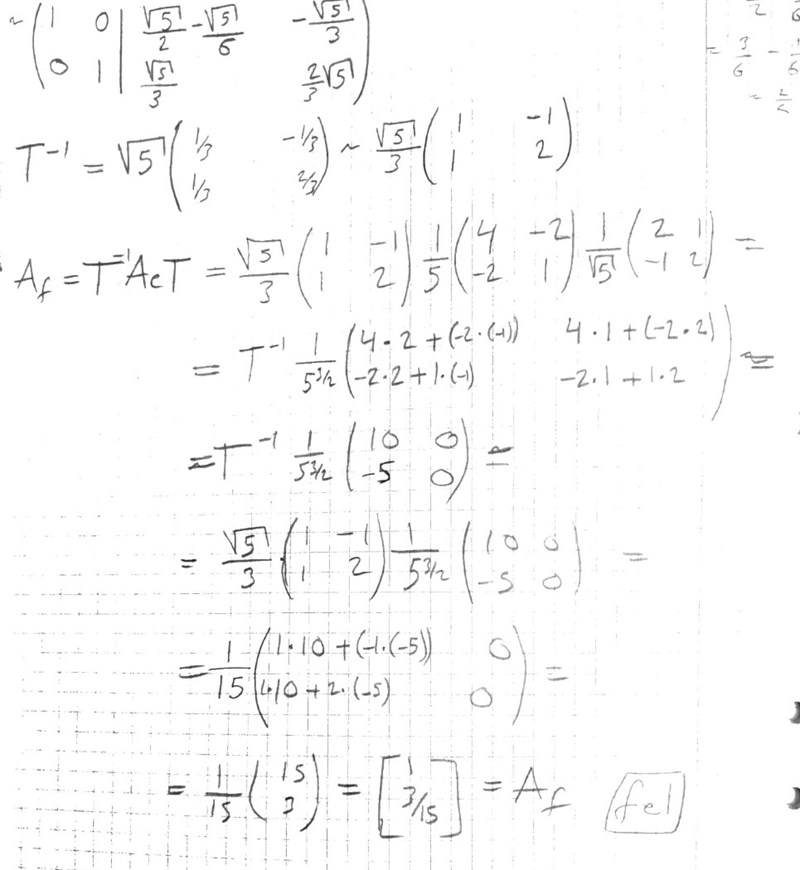 ~ (1 0 | √5/2 - √5/6 -√5/3
0 1 | √5/3 2/3 √5)
T⁻¹ = √5 (1/3 -1/3 ; 1/3 2/3) ~ √5/3 (1 -1 ; 1 2)
A_f = T⁻¹A_eT = √5/3 (1 -1 ; 1 2) 1/5 (4 -2 ; -2 1) 1/√5 (2 1 ; -1 2) =
= T⁻¹ 1/5^(3/2) (4·2+(-2·(-1)) 4·1+(-2·2) ; -2·2+1·(-1) -2·1+1·2) =
= T⁻¹ 1/5^(3/2) (10 0 ; -5 0) =
= √5/3 (1 -1 ; 1 2) 1/5^(3/2) (10 0 ; -5 0) =
= 1/15 (1·10+(-1·(-5)) 0 ; 1·10+2·(-5) 0) =
= 1/15 (15 ; 3) = [1 ; 3/15] = A_f fel
= 3/6 -